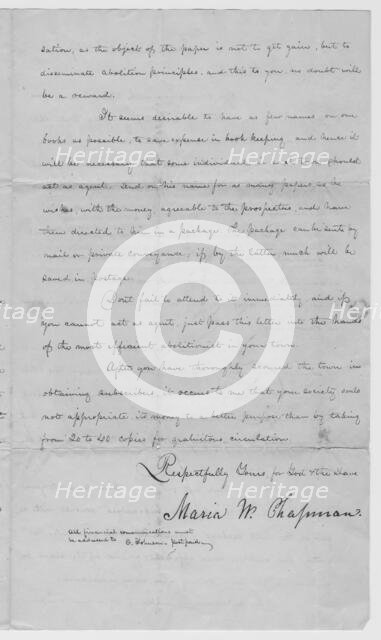 sation, as the object of the paper is not to get gain, but to
disseminate abolition principles, and this to you, no doubt will
be a reward.
It seems desirable to have as few names on our
books as possible, to save expense in book keeping, and hence it
will be necessary that some individual in each town should
act as agent, send on his name for as many papers as he
wishes, with the money agreeable to the prospectus, and have
them directed to him in a package. The package can be sent by
mail or private conveyance; if by the latter much will be
saved in postage.
Don't fail to attend to it immediately, and if
you cannot act as agent, just pass this letter into the hands
of the most efficient abolitionist in your town.
After you have thoroughly scoured the town in
obtaining subscribers, it occurs to me that your society could
not appropriate its money to a better purpose than by taking
from 20 to 40 copies for gratuitous circulation.
Respectfully Yours for God & the Slave
Maria W. Chapman.
All financial communications must
be addressed to O. Johnson, post paid.
Heritage Heritage
Heritage Heritage
Heritage Heritage
Heritage Heritage